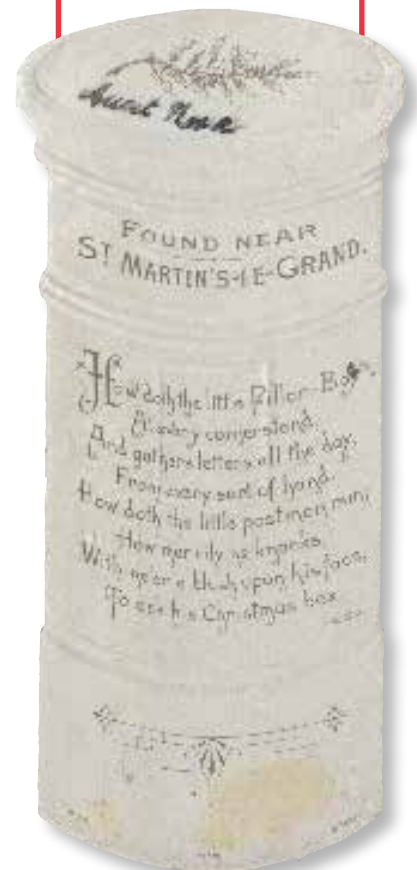 Aunt Nora
FOUND NEAR
ST MARTIN'S-LE-GRAND.
How doth the little Pillar-Box,
At every corner stand,
And gathers letters all the day,
From every sort of hand.
How doth the little postman run,
How merrily he knocks
With never a blush upon his face,
To ask his Christmas box